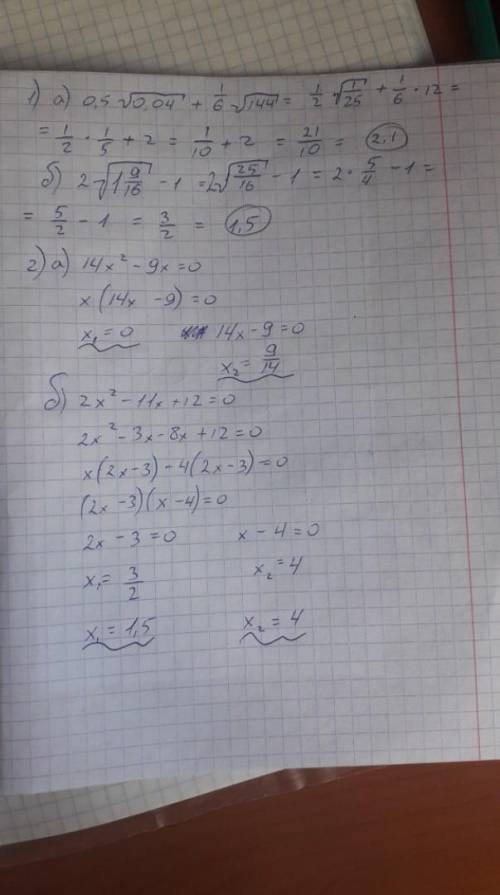 1) а) 0,5 · √0,04 + 1/6 · √144 = 1/2 · √1/25 + 1/6 · 12 =
= 1/2 · 1/5 + 2 = 1/10 + 2 = 21/10 = 2,1
б) 2 · √1 9/16 - 1 = 2√25/16 - 1 = 2 · 5/4 - 1 =
= 5/2 - 1 = 3/2 = 1,5
2) а) 14x² - 9x = 0
x(14x - 9) = 0
x₁ = 0 14x - 9 = 0
x₂ = 9/14
б) 2x² - 11x + 12 = 0
2x² - 3x - 8x + 12 = 0
x(2x - 3) - 4(2x - 3) = 0
(2x - 3)(x - 4) = 0
2x - 3 = 0 x - 4 = 0
x₁ = 3/2 x₂ = 4
x₁ = 1,5 x₂ = 4